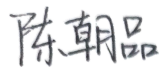 陈朝品